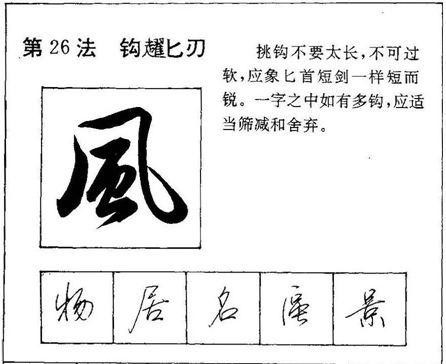 第26法 钩趯匕刃
挑钩不要太长,不可过
软,应象匕首短剑一样短而
锐。一字之中如有多钩,应适
当筛减和舍弃。
風
物 居 名 蜃 景